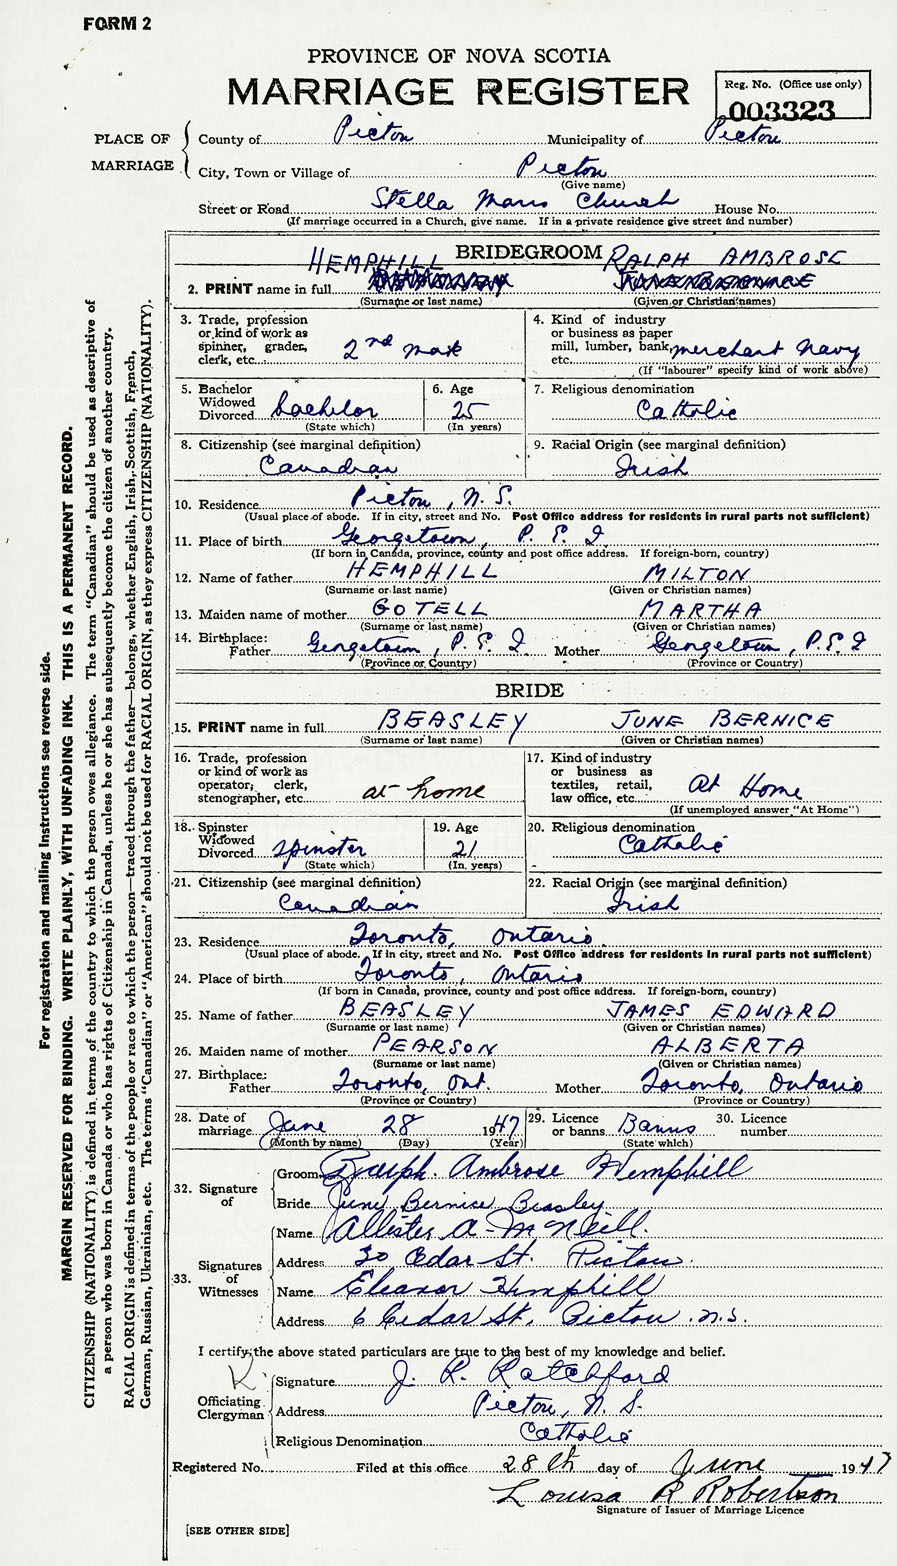 FORM 2
PROVINCE OF NOVA SCOTIA
MARRIAGE REGISTER
Reg. No. (Office use only)
003323
PLACE OF MARRIAGE
County of Pictou Municipality of Pictou
City, Town or Village of Pictou
(Give name)
Street or Road Stella Maris Church House No.
(If marriage occurred in a Church, give name. If in a private residence give street and number)
BRIDEGROOM
HEMPHILL RALPH AMBROSE
2. PRINT name in full
(Surname or last name) (Given or Christian names)
3. Trade, profession 4. Kind of industry
or kind of work as or business as paper
spinner, grader, mill, lumber, bank,
clerk, etc. 2nd mate etc. merchant navy
(If "labourer" specify kind of work above)
5. Bachelor 6. Age 7. Religious denomination
Widowed
Divorced bachelor 25 Catholic
(State which) (In years)
8. Citizenship (see marginal definition) 9. Racial Origin (see marginal definition)
Canadian Irish
10. Residence Pictou, N.S.
(Usual place of abode. If in city, street and No. Post Office address for residents in rural parts not sufficient)
11. Place of birth Georgetown, P.E.I
(If born in Canada, province, county and post office address. If foreign-born, country)
12. Name of father HEMPHILL MILTON
(Surname or last name) (Given or Christian names)
13. Maiden name of mother GOTELL MARTHA
(Surname or last name) (Given or Christian names)
14. Birthplace:
Father Georgetown, P.E.I Mother Georgetown, P.E.I
(Province or Country) (Province or Country)
BRIDE
15. PRINT name in full BEASLEY JUNE BERNICE
(Surname or last name) (Given or Christian names)
16. Trade, profession 17. Kind of industry
or kind of work as or business as
operator, clerk, textiles, retail,
stenographer, etc. at home law office, etc. At Home
(If unemployed answer "At Home")
18. Spinster 19. Age 20. Religious denomination
Widowed
Divorced spinster 21 Catholic
(State which) (In years)
21. Citizenship (see marginal definition) 22. Racial Origin (see marginal definition)
Canadian Irish
23. Residence Toronto, Ontario
(Usual place of abode. If in city, street and No. Post Office address for residents in rural parts not sufficient)
24. Place of birth Toronto, Ontario
(If born in Canada, province, county and post office address. If foreign-born, country)
25. Name of father BEASLEY JAMES EDWARD
(Surname or last name) (Given or Christian names)
26. Maiden name of mother PEARSON ALBERTA
(Surname or last name) (Given or Christian names)
27. Birthplace:
Father Toronto, Ont. Mother Toronto, Ontario
(Province or Country) (Province or Country)
28. Date of 29. Licence 30. Licence
marriage June 28 1947 or banns Banns number
(Month by name) (Day) (Year) (State which)
32. Signature of
Groom Ralph Ambrose Hemphill
Bride June Bernice Beasley
33. Signatures of Witnesses
Name Allister A. McNeill.
Address 30 Cedar St. Pictou.
Name Eleanor Hemphill
Address 6 Cedar St, Pictou. N.S.
I certify the above stated particulars are true to the best of my knowledge and belief.
Officiating Clergyman
Signature J. R. Ratchford
Address Pictou, N.S.
Religious Denomination Catholic
Registered No. Filed at this office 28th day of June 1947
Louisa R Robertson
Signature of Issuer of Marriage Licence
[SEE OTHER SIDE]
For registration and mailing instructions see reverse side.
MARGIN RESERVED FOR BINDING. WRITE PLAINLY, WITH UNFADING INK. THIS IS A PERMANENT RECORD.
CITIZENSHIP (NATIONALITY) is defined in terms of the country to which the person owes allegiance. The term "Canadian" should be used as descriptive of
a person who was born in Canada or who has rights of Citizenship in Canada, unless he or she has subsequently become the citizen of another country.
RACIAL ORIGIN is defined in terms of the people or race to which the person—traced through the father—belongs, whether English, Irish, Scottish, French,
German, Russian, Ukrainian, etc. The terms "Canadian" or "American" should not be used for RACIAL ORIGIN, as they express CITIZENSHIP (NATIONALITY).